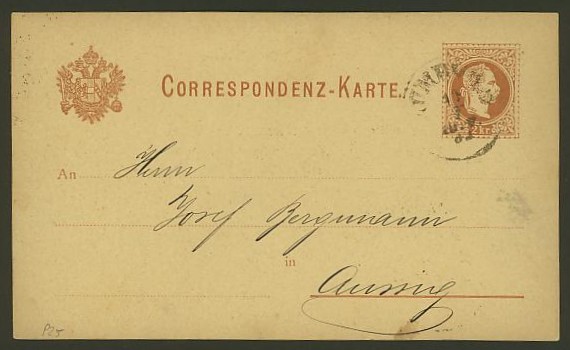 CORRESPONDENZ-KARTE.
2 Kr.
An Herrn
Josef Bergmann
in
Aussig
P25